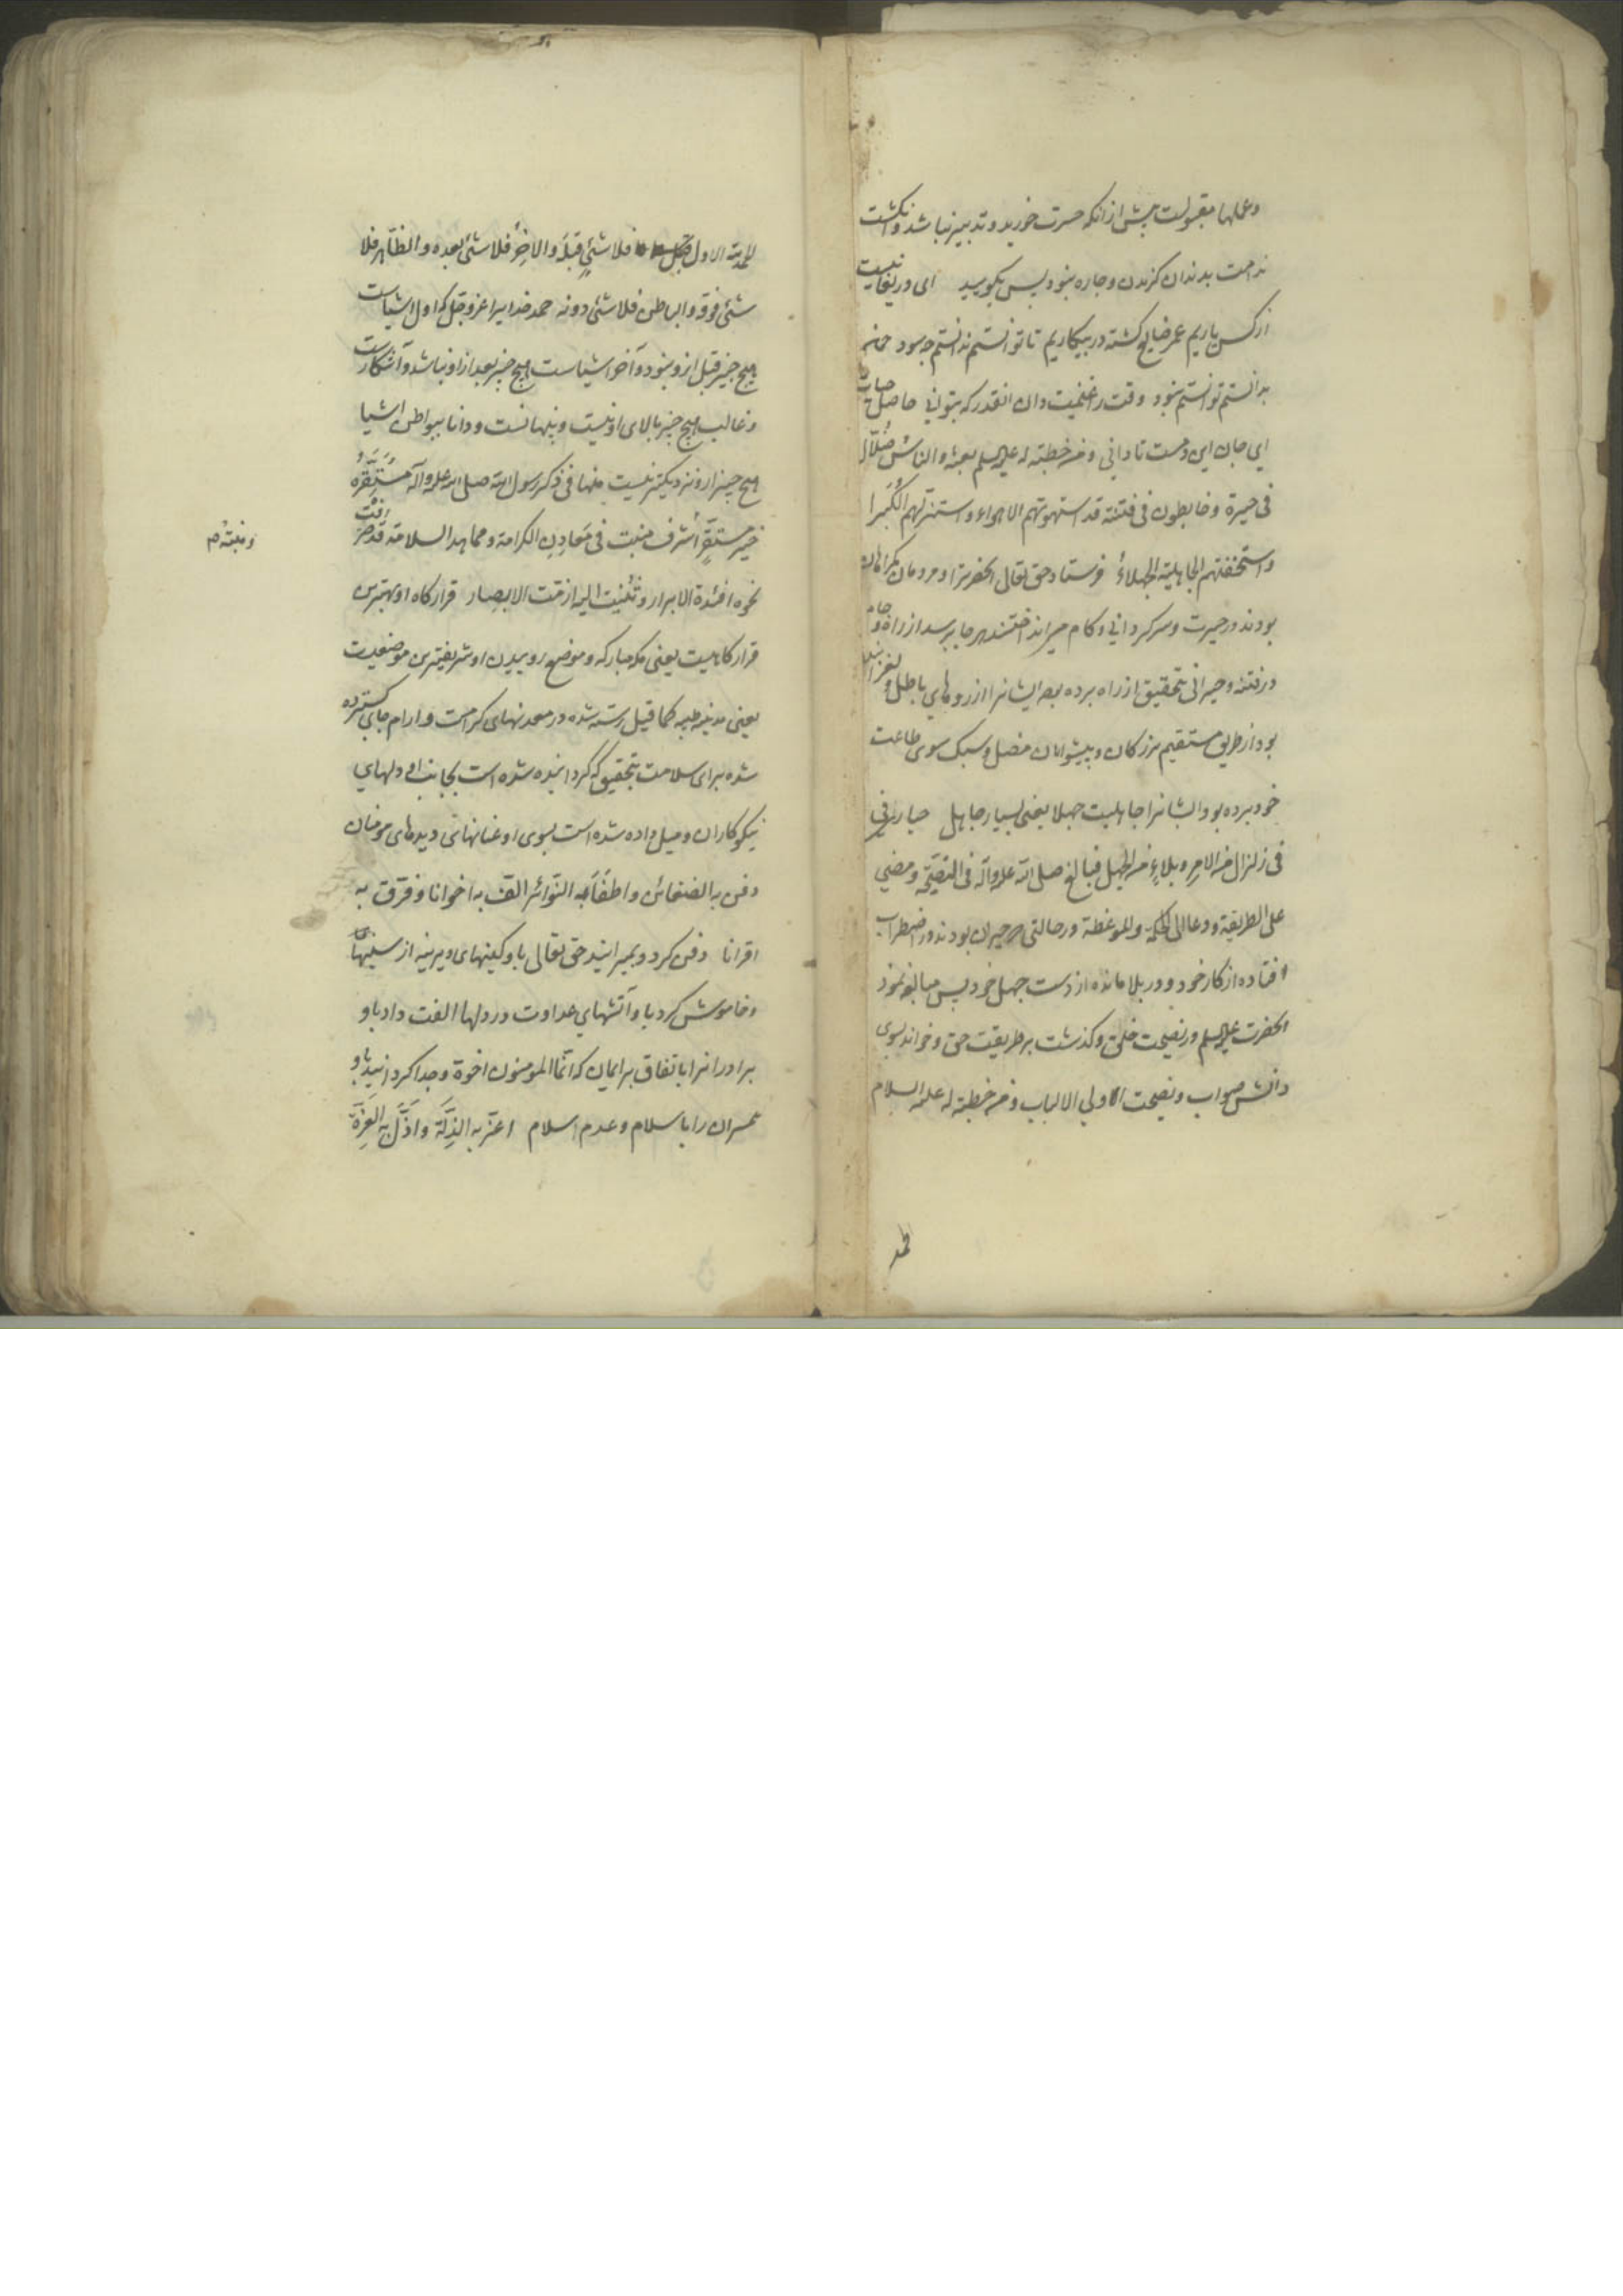 وعملها مقبولست پیش از انکه حسرت خورید و تدبیر نباشد و انکشت
ندامت بدندان کزیدن و چاره نبود پس بکویید ای دریغا نیست
از کس یاریم عمر ضایع کشته در بیکاریم تا توانستم ندانستم چه سود
بدانستم توانستم نبود وقت را غنیمت دان انقدر که بتوانی حاصل حیات
ای جان این دمست تا دانی ومن خطبته له علیه السلم بعثه والناس ضُلّال
فی حیرة وخابطون فی فتنة قد استهوتهم الاهواء واستنزلهم الکُبَرا
واستخفتهم الجاهلیة الجهلاءُ فرستاد حق تعالی انحضرترا و مردمان کمراهان
بودند در حیرت و سرکردانی و کام میزانداختند هر جا برسد از راه و چاه
در فتنه و حیرانی بتحقیق از راه برده بود ایشانرا ارزوهای باطل و لغزانیده
بود از طریق مستقیم بزرکان و پیشوایان مضل و سبک سوی طاعت
خود برده بود ایشانرا جاهلیت جهلا یعنی بسیار جاهل حیاری فی
فی زلزال من الامر وبلاءٍ من الجهل فبالغ صلی الله علیه وآله فی النّصیحة ومضی
علی الطریقة ودعا الی الحکمة والموعظة در حالتی حیران بودند در اضطراب
افتاده از کار خود و در بلا مانده از دست جهل خود پس مبالغه نمود
انحضرت علیه السلم در نصیحت خلق و کذشت بر طریقت حق و خواند بسوی
دانش صواب و نصیحت اولی الالباب ومن خطبته له علیه السلام
الحمد
الحمد لله الاول فلا شئیٍ قبلَه والاخِرُ فلا شئی بعده والظّاهر فلا
شئی فوقه والباطن فلا شئی دونه حمد خدایرا عز و جل که اول اشیاست
هیچ چیز قبل ازو نبود و آخر اشیاست هیچ چیز بعد از او نباشد و آشکارست
و غالب هیچ چیز بالای او نیست و پنهانست و دانا ببواطن اشیا
هیچ چیز ازو نزدیکتر نیست منها فی ذکر رسول الله صلی الله علیه وآله مُستَقَرُّه
خیر مستقَرٍّ اشرف منبت فی مَعادِنِ الکرامة ومماهد السلامة قد صرفت
ومنبتُه م
نحوه افئدة الابرار وثُنیت الیه ازمّت الابصار قرارکاه او بهترین
قرارکاهیست یعنی مکه مبارکه و موضع روییدن او شریفترین موضعیست
یعنی مدینه طیبه کما قیل رسته شده در معدنهای کرامت و ارام جای کسترده
شده برای سلامت بتحقیق که کردانیده شده است بجانب او دلهای
نیکوکاران و میل داده شده است بسوی او عنانهای دیدهای مومنان
دفن به الضغائن واطفَأ به النّوائر الّف به اخوانا وفرّق به
اقرانا دفن کرد و بمیرانید حق تعالی باو کینهای دیرینه از سینها
و خاموش کرد باو آتشهای عداوت در دلها الفت داد باو
برادرانرا باتفاق بر ایمان که انّما المومنون اخوة و جدا کردانید باو
همسران را باسلام و عدم اسلام اعزّ به الذِلَّة واَذَلّ به العِزّة